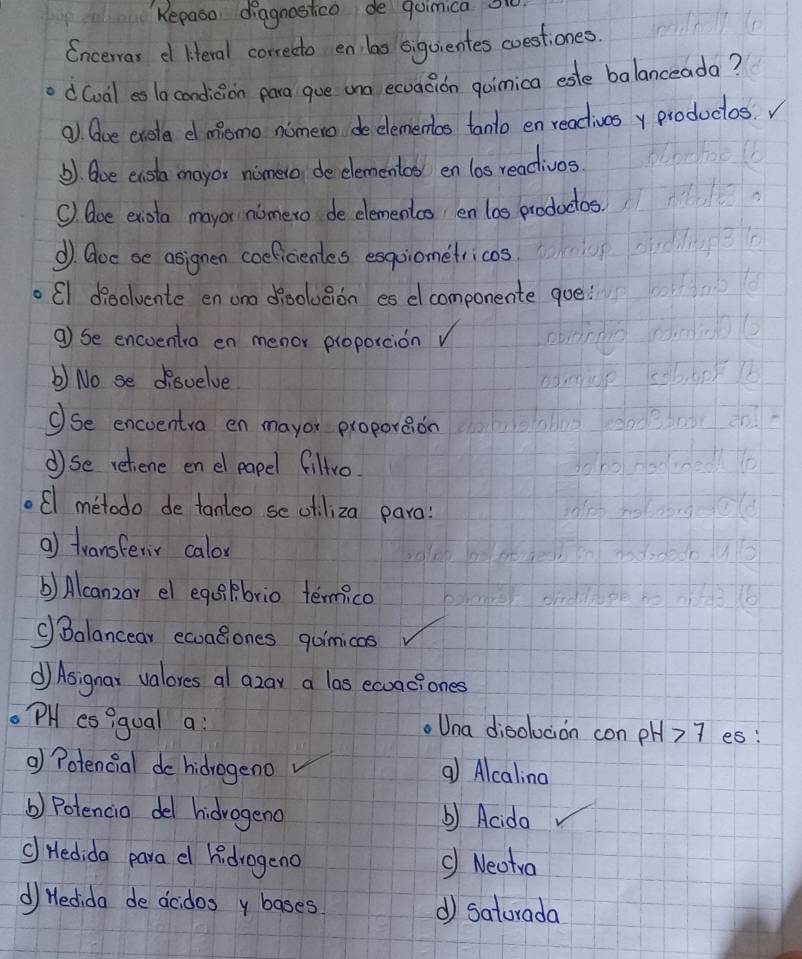 Repaso diagnostico de quimica
Encerrar el literal correcto en las siguientes cuestiones.
• ¿Cuál es la condición para que una ecuación química este balanceada?
a). Que exista el mismo número de elementos tanto en reactivos y productos. ✓
b). Que exista mayor número de elementos en los reactivos.
c). Que exista mayor número de elementos en los productos.
d). Que se asignen coeficientes esquiométricos.
• El disolvente en una disolución es el componente que:
a) Se encuentra en menor proporción ✓
b) No se disuelve
c) Se encuentra en mayor proporción
d) Se retiene en el papel filtro.
• El método de tanteo se utiliza para:
a) transferir calor
b) Alcanzar el equilibrio térmico
c) Balancear ecuaciones químicas ✓
d) Asignar valores al azar a las ecuaciones
• PH es igual a:
a) Potencial de hidrogeno ✓
b) Potencia del hidrogeno
c) Medida para el hidrogeno
d) Medida de ácidos y bases.
• Una disolución con pH > 7 es:
a) Alcalina
b) Acida ✓
c) Neutra
d) Saturada